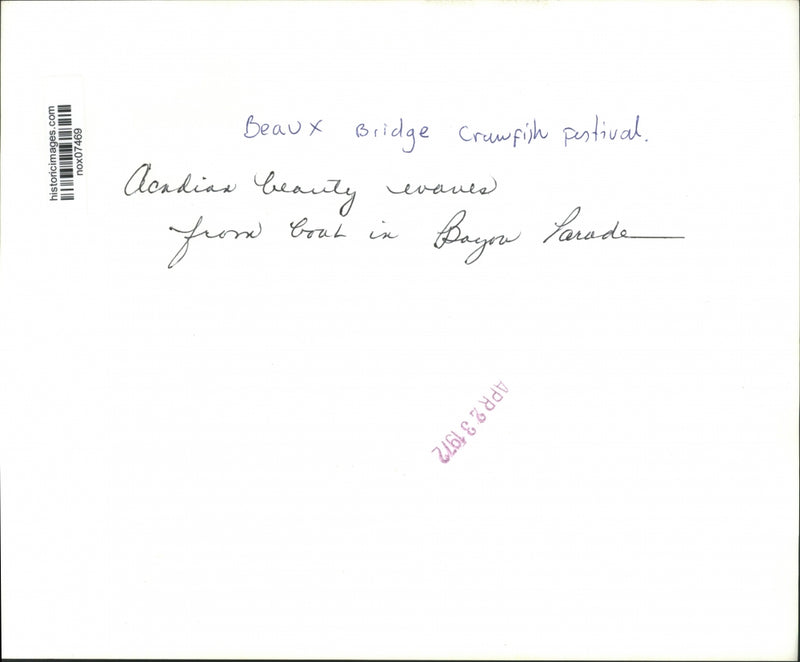 historicimages.com
nox07469
Beaux Bridge Crawfish festival.
Acadian beauty waves
from boat in Bayou Parade
APR 23 1972